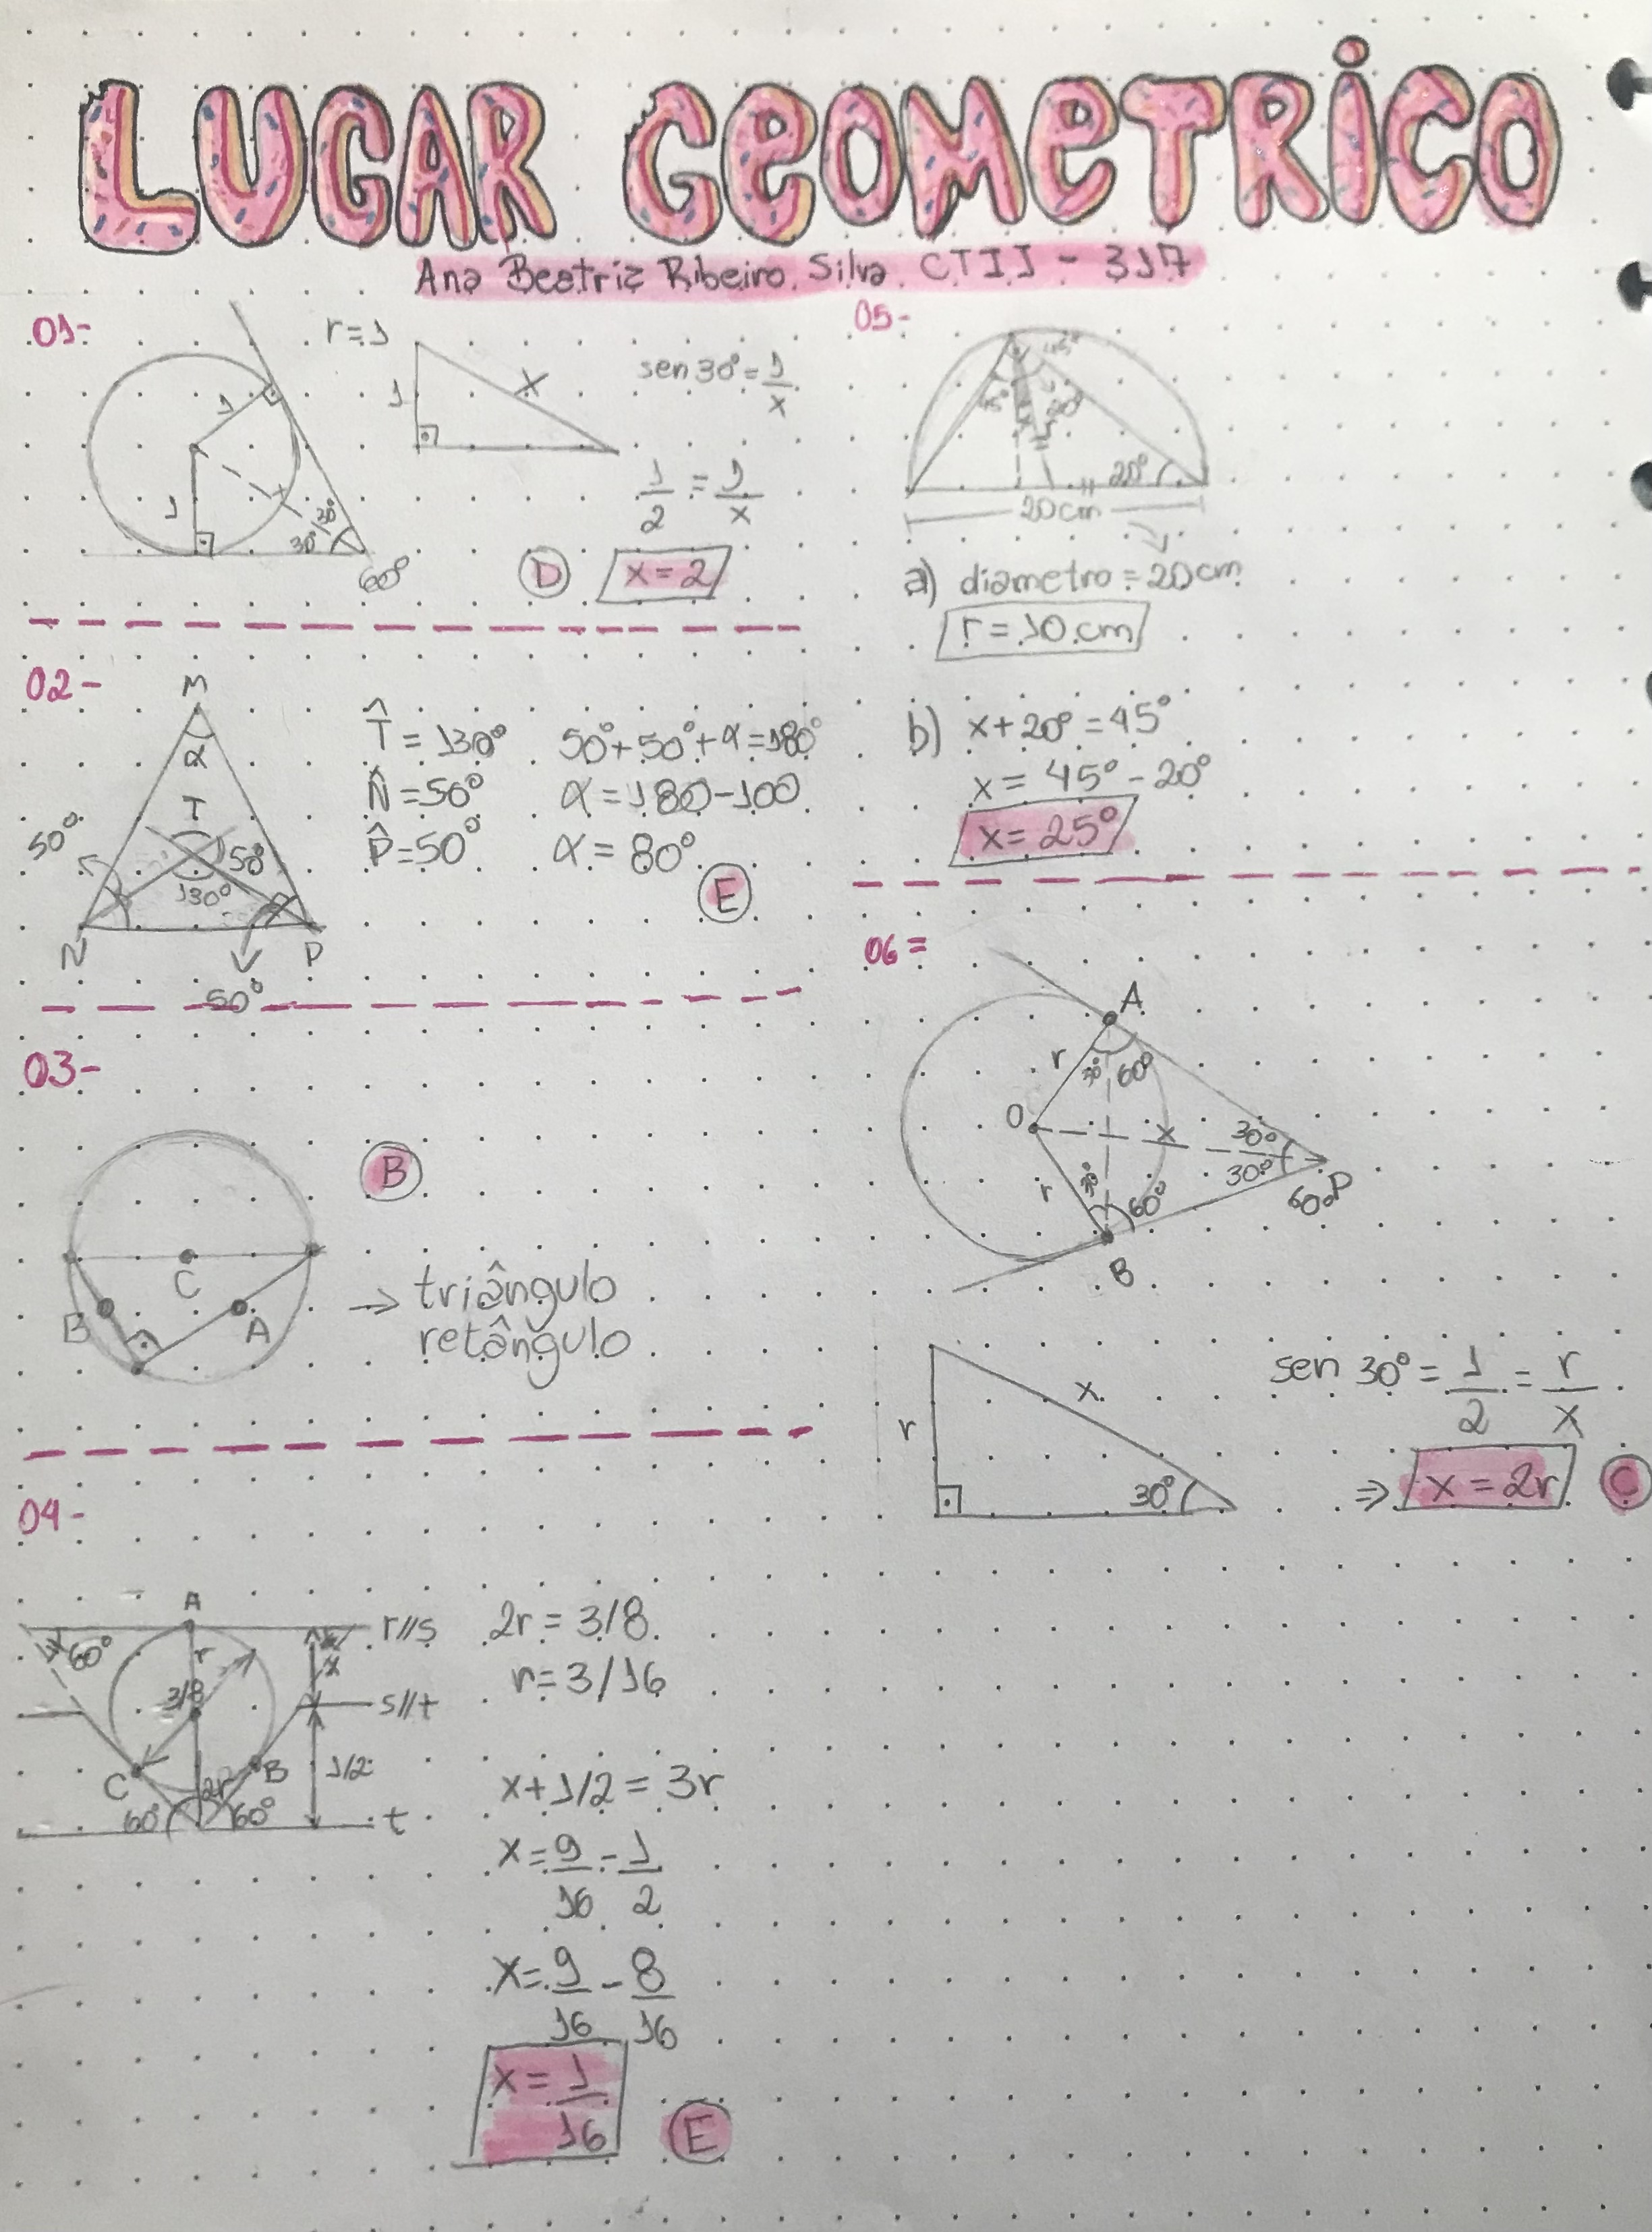 LUGAR GEOMETRICO
Ana Beatriz Ribeiro Silva CTII - 317
01-
r=1
1
1
30°
30°
60°
1
x
sen 30° = 1/x
1/2 = 1/x
D x = 2
02-
M
α
T
50°
50°
130°
N
P
50°
T̂ = 130°
N̂ = 50°
P̂ = 50°
50°+50°+α=180°
α = 180-100
α = 80°
E
03-
B
C
B
A
→ triângulo
retângulo
04-
A
60°
r
x
r//s
3/8
s//t
C
2r
B
1/2
60°
60°
t
2r = 3/8
r = 3/16
x + 1/2 = 3r
x = 9/16 - 1/2
x = 9/16 - 8/16
x = 1/16
E
05-
45°
45°
x
20°
20°
20cm
a) diametro = 20cm
r = 10 cm
b) x + 20° = 45°
x = 45° - 20°
x = 25°
06=
A
r
30°
60°
O
x
30°
30°
P
60°
r
30°
60°
B
r
x
30°
sen 30° = 1/2 = r/x
⇒ x = 2r C